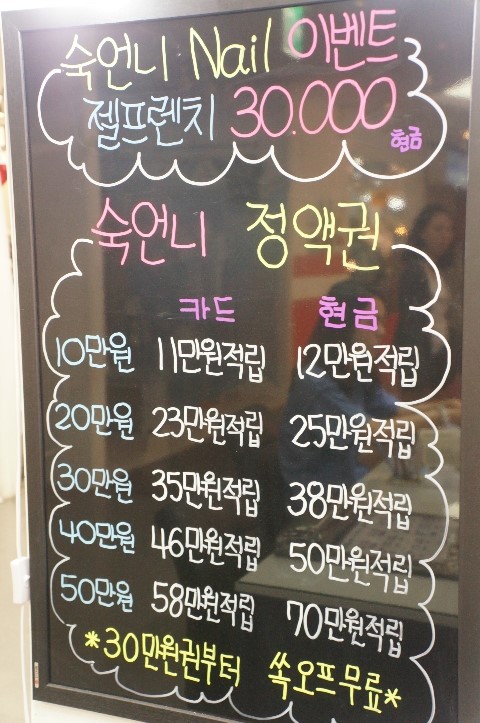 숙언니 Nail 이벤트
젤프렌치 30.000 현금
숙언니 정액권
카드 현금
10만원 11만원적립 12만원적립
20만원 23만원적립 25만원적립
30만원 35만원적립 38만원적립
40만원 46만원적립 50만원적립
50만원 58만원적립 70만원적립
*30만원권부터 쏙오프무료*